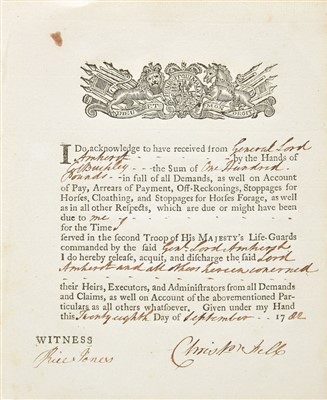 DIEU ET MON DROIT
I Do acknowledge to have received from General Lord
Amherst - - - by the Hands of
Brickley - - the Sum of One Hundred
Pounds - - in full of all Demands, as well on Account
of Pay, Arrears of Payment, Off-Reckonings, Stoppages for
Horses, Cloathing, and Stoppages for Horses Forage, as well
as in all other Respects, which are due or might have been
due to me
for the Time I
served in the second Troop of His MAJESTY's Life-Guards
commanded by the said Genl. Lord Amherst
I do hereby release, acquit, and discharge the said Lord
Amherst and all others herein concerned
their Heirs, Executors, and Administrators from all Demands
and Claims, as well on Account of the abovementioned Parti-
culars as all others whatsoever. Given under my Hand
this Twenty eighth Day of September - - 1782
WITNESS
Rice Jones